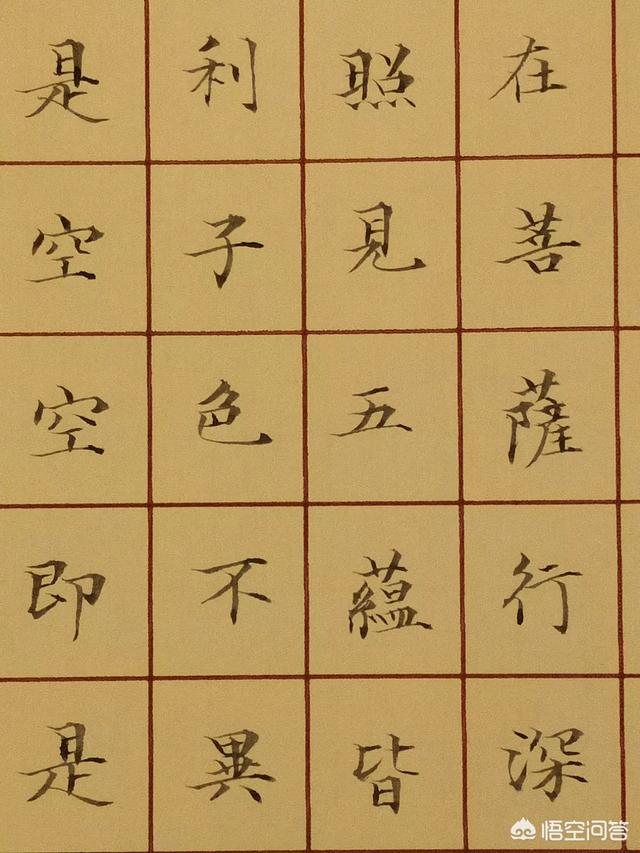 在菩薩行深
照見五蘊皆
利子色不異
是空空即是
悟空问答